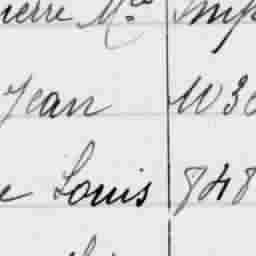 ierre Mce Imp
Jean 1030
e Louis 848